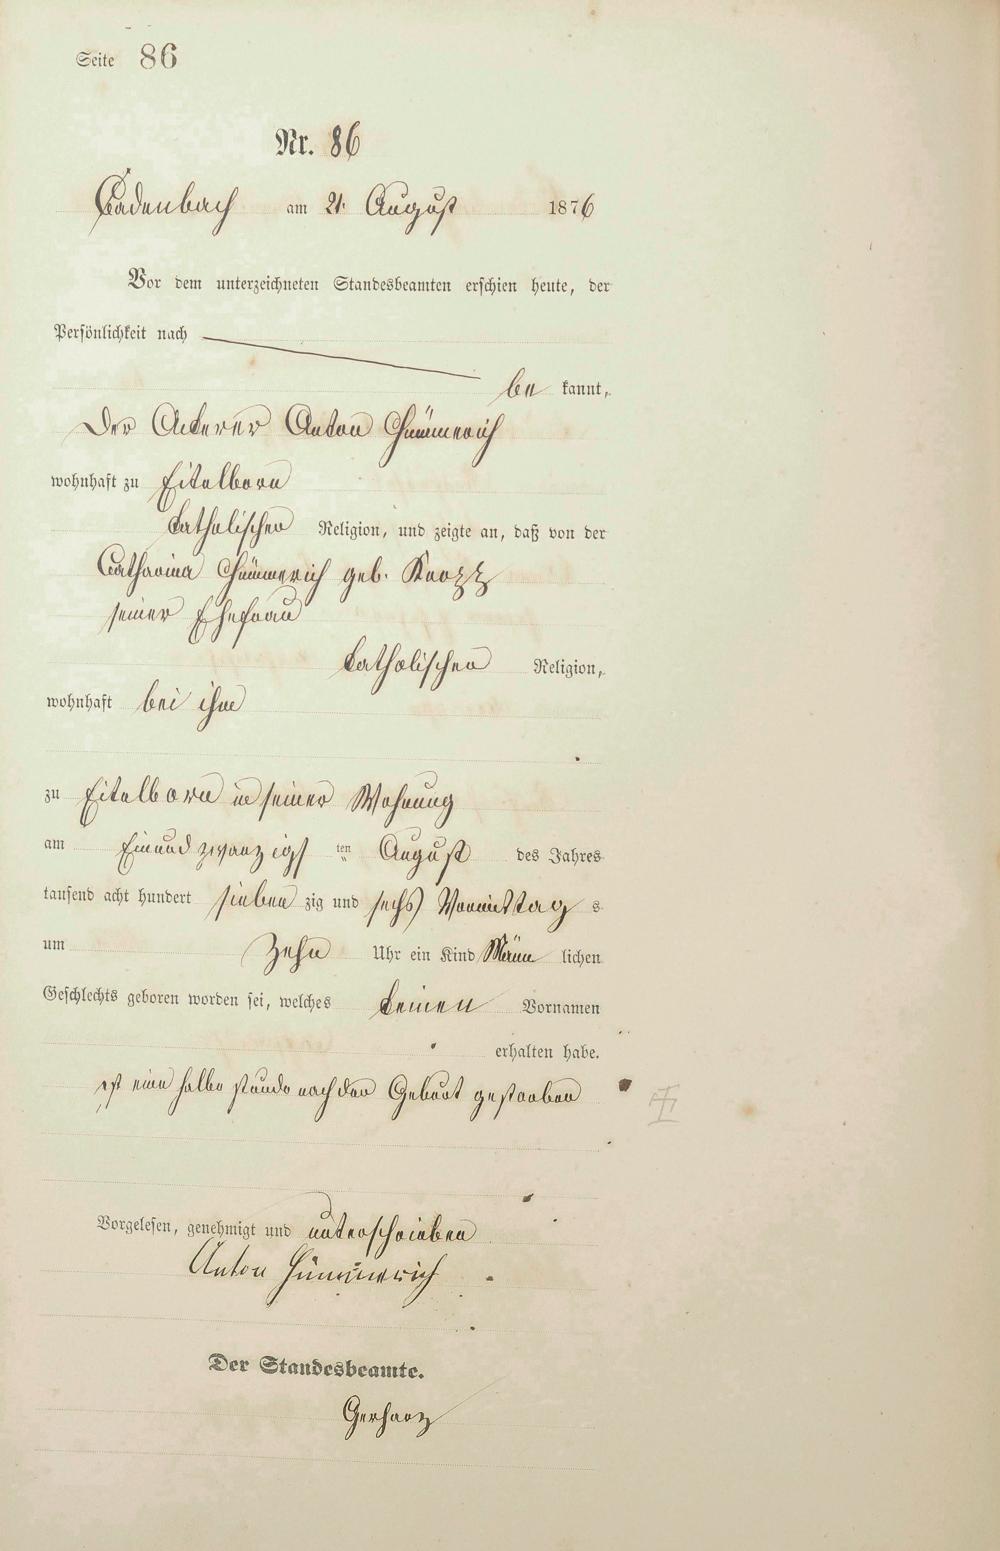 Seite 86
Nr. 86
Cadenbach am 21. August 1876
Vor dem unterzeichneten Standesbeamten erschien heute, der
Persönlichkeit nach
be kannt,
Der Ackerer Anton Hümmerich
wohnhaft zu Eitelborn
katholischer Religion, und zeigte an, daß von der
Catharina Hümmerich geb. Knopp
seiner Ehefrau
katholischer Religion,
wohnhaft bei ihm
zu Eitelborn in seiner Wohnung
am Einundzwanzigs ten August des Jahres
tausend acht hundert sieben zig und sechs Vormittag s
um Zehn Uhr ein Kind Männ lichen
Geschlechts geboren worden sei, welches keinen Vornamen
erhalten habe.
ist eine halbe stunde nach der Geburt gestorben
Vorgelesen, genehmigt und unterschrieben
Anton Hümmerich
Der Standesbeamte.
Gerharz